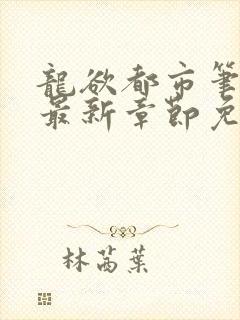 龍欲都市筆
最新章節免
林萵葉